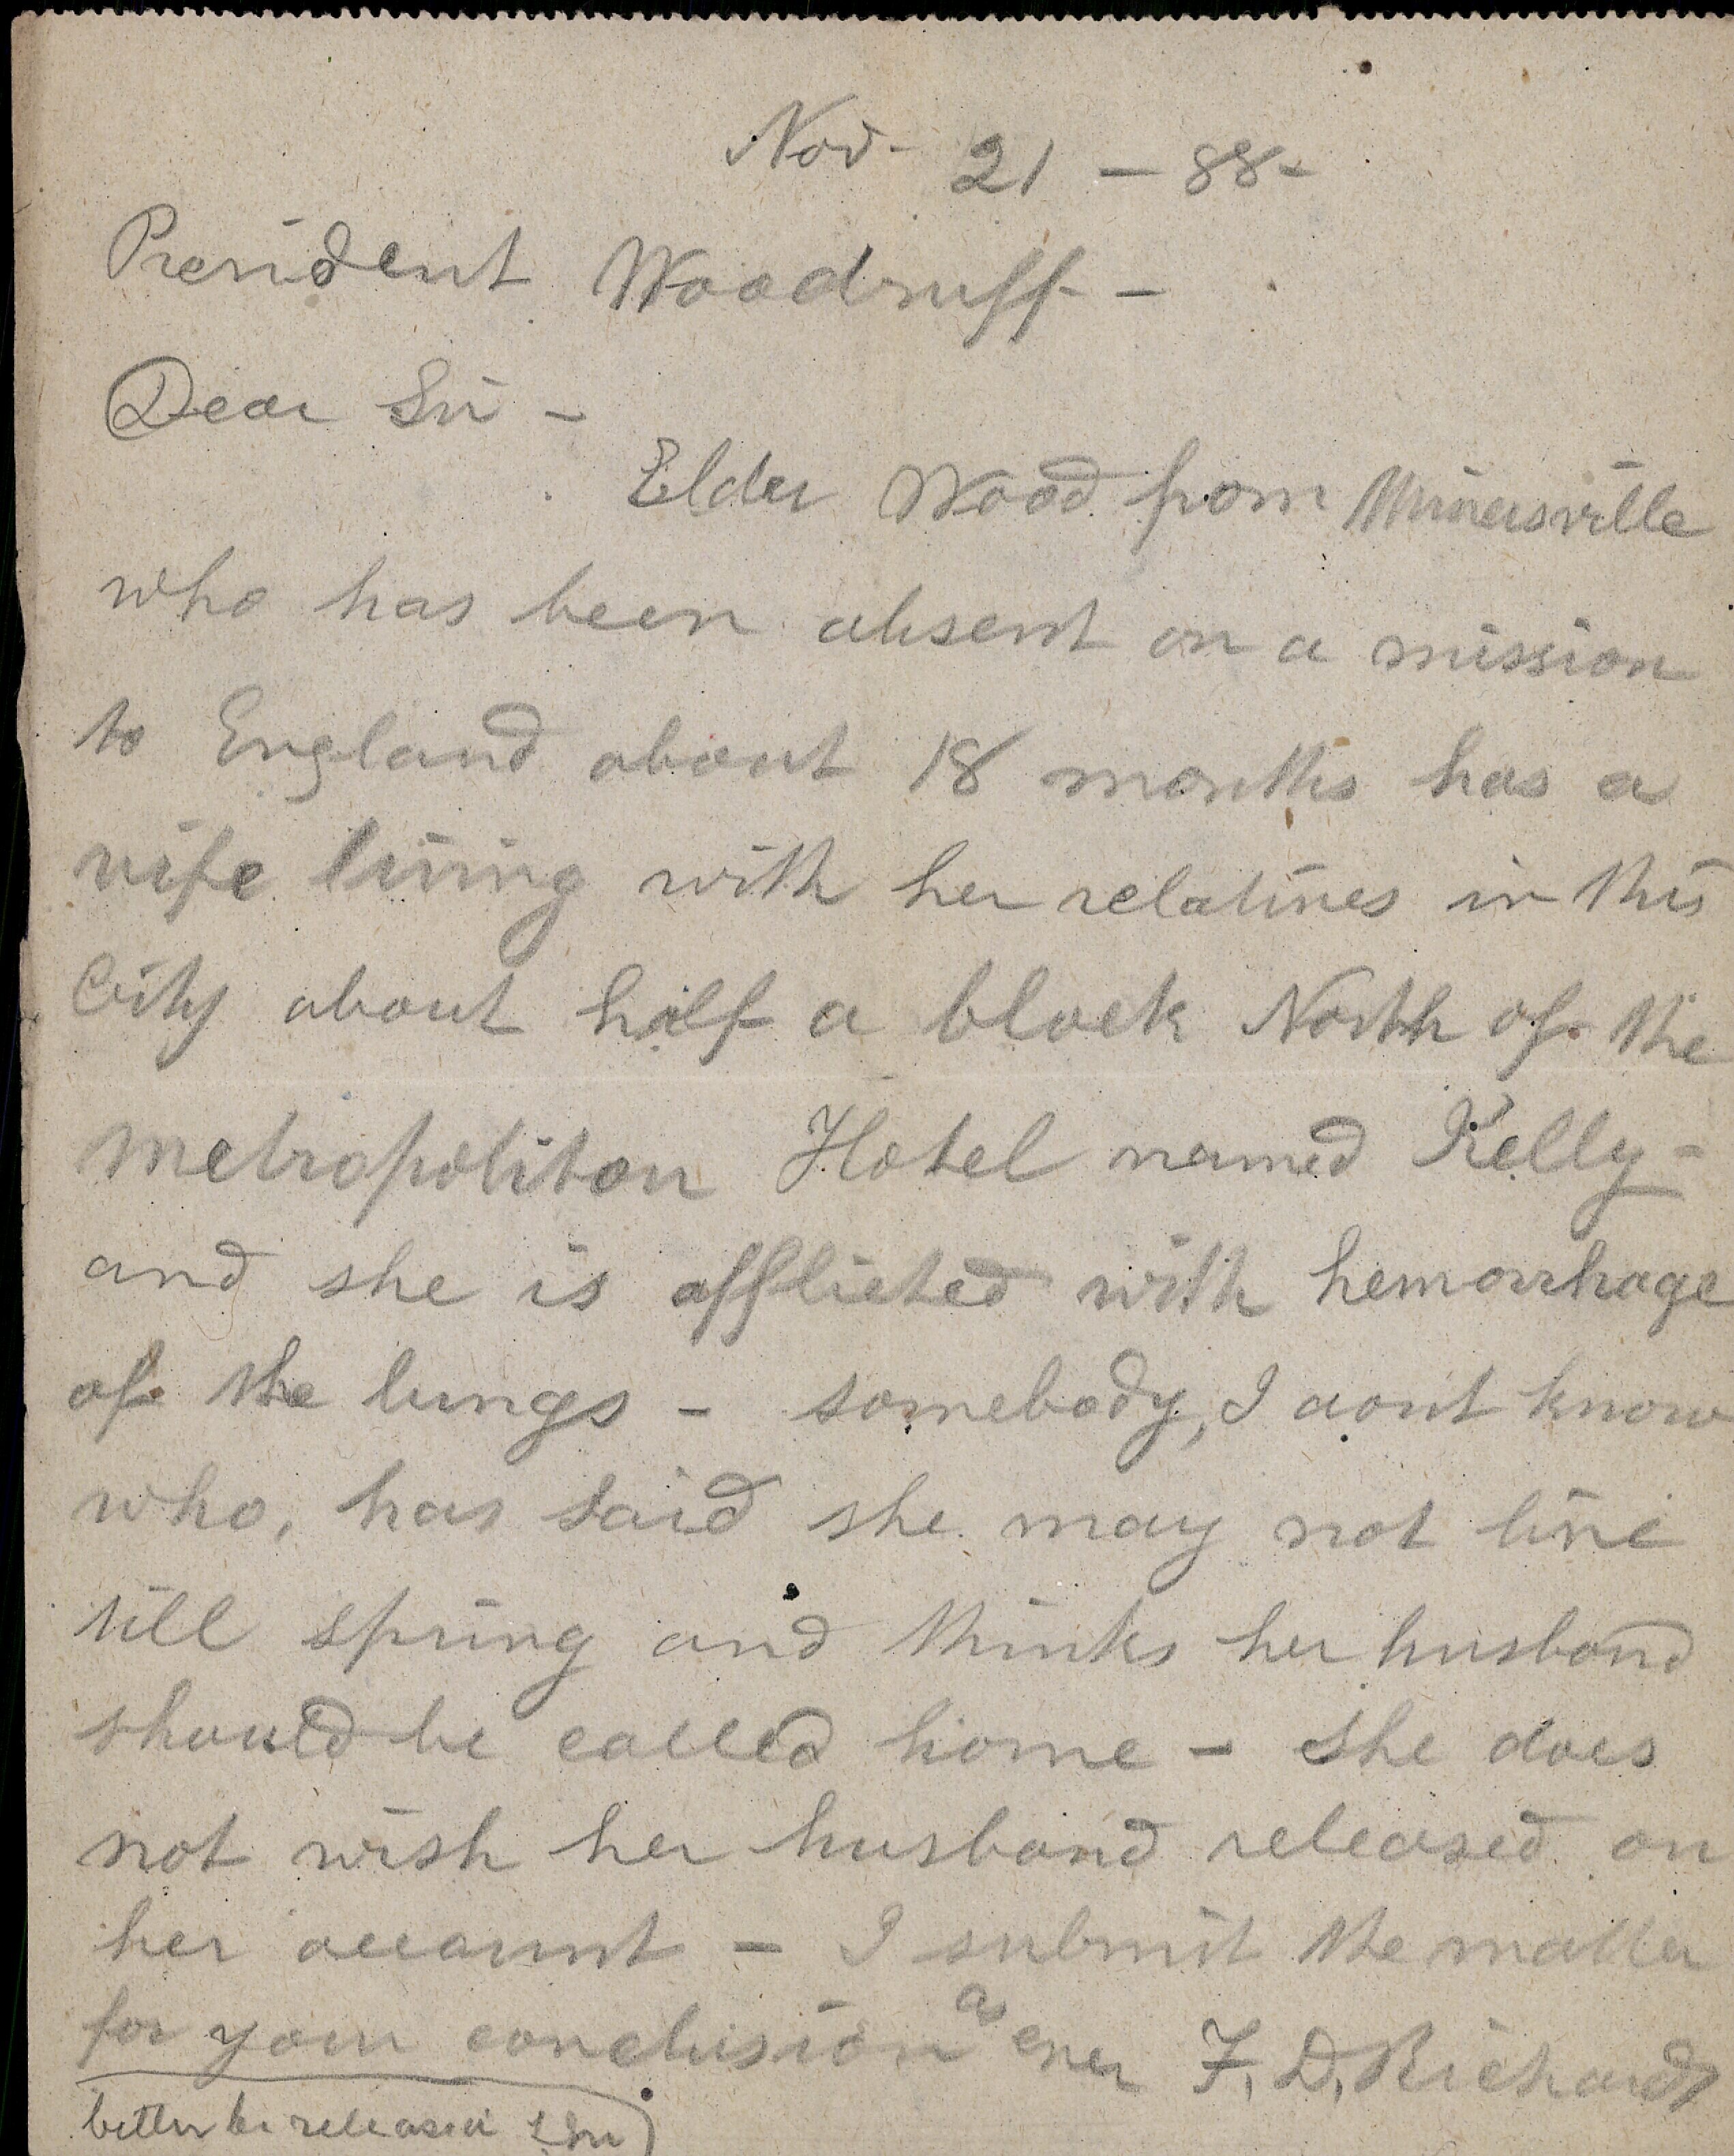 Nov- 21 - 88-
President Woodruff -
Dear Sir -
Elder Wood from Minersville
who has been absent on a mission
to England about 18 months has a
wife living with her relatives in this
City about half a block North of the
Metropoliton Hotel named Kelly -
and she is afflicted with hemorrhage
of the lungs - somebody, I dont know
who, has said she may not live
till spring and thinks her husband
should be called home - she does
not wish her husband released on
her account - I submit the matter
for your conclusion as ever F. D. Richards
better be released